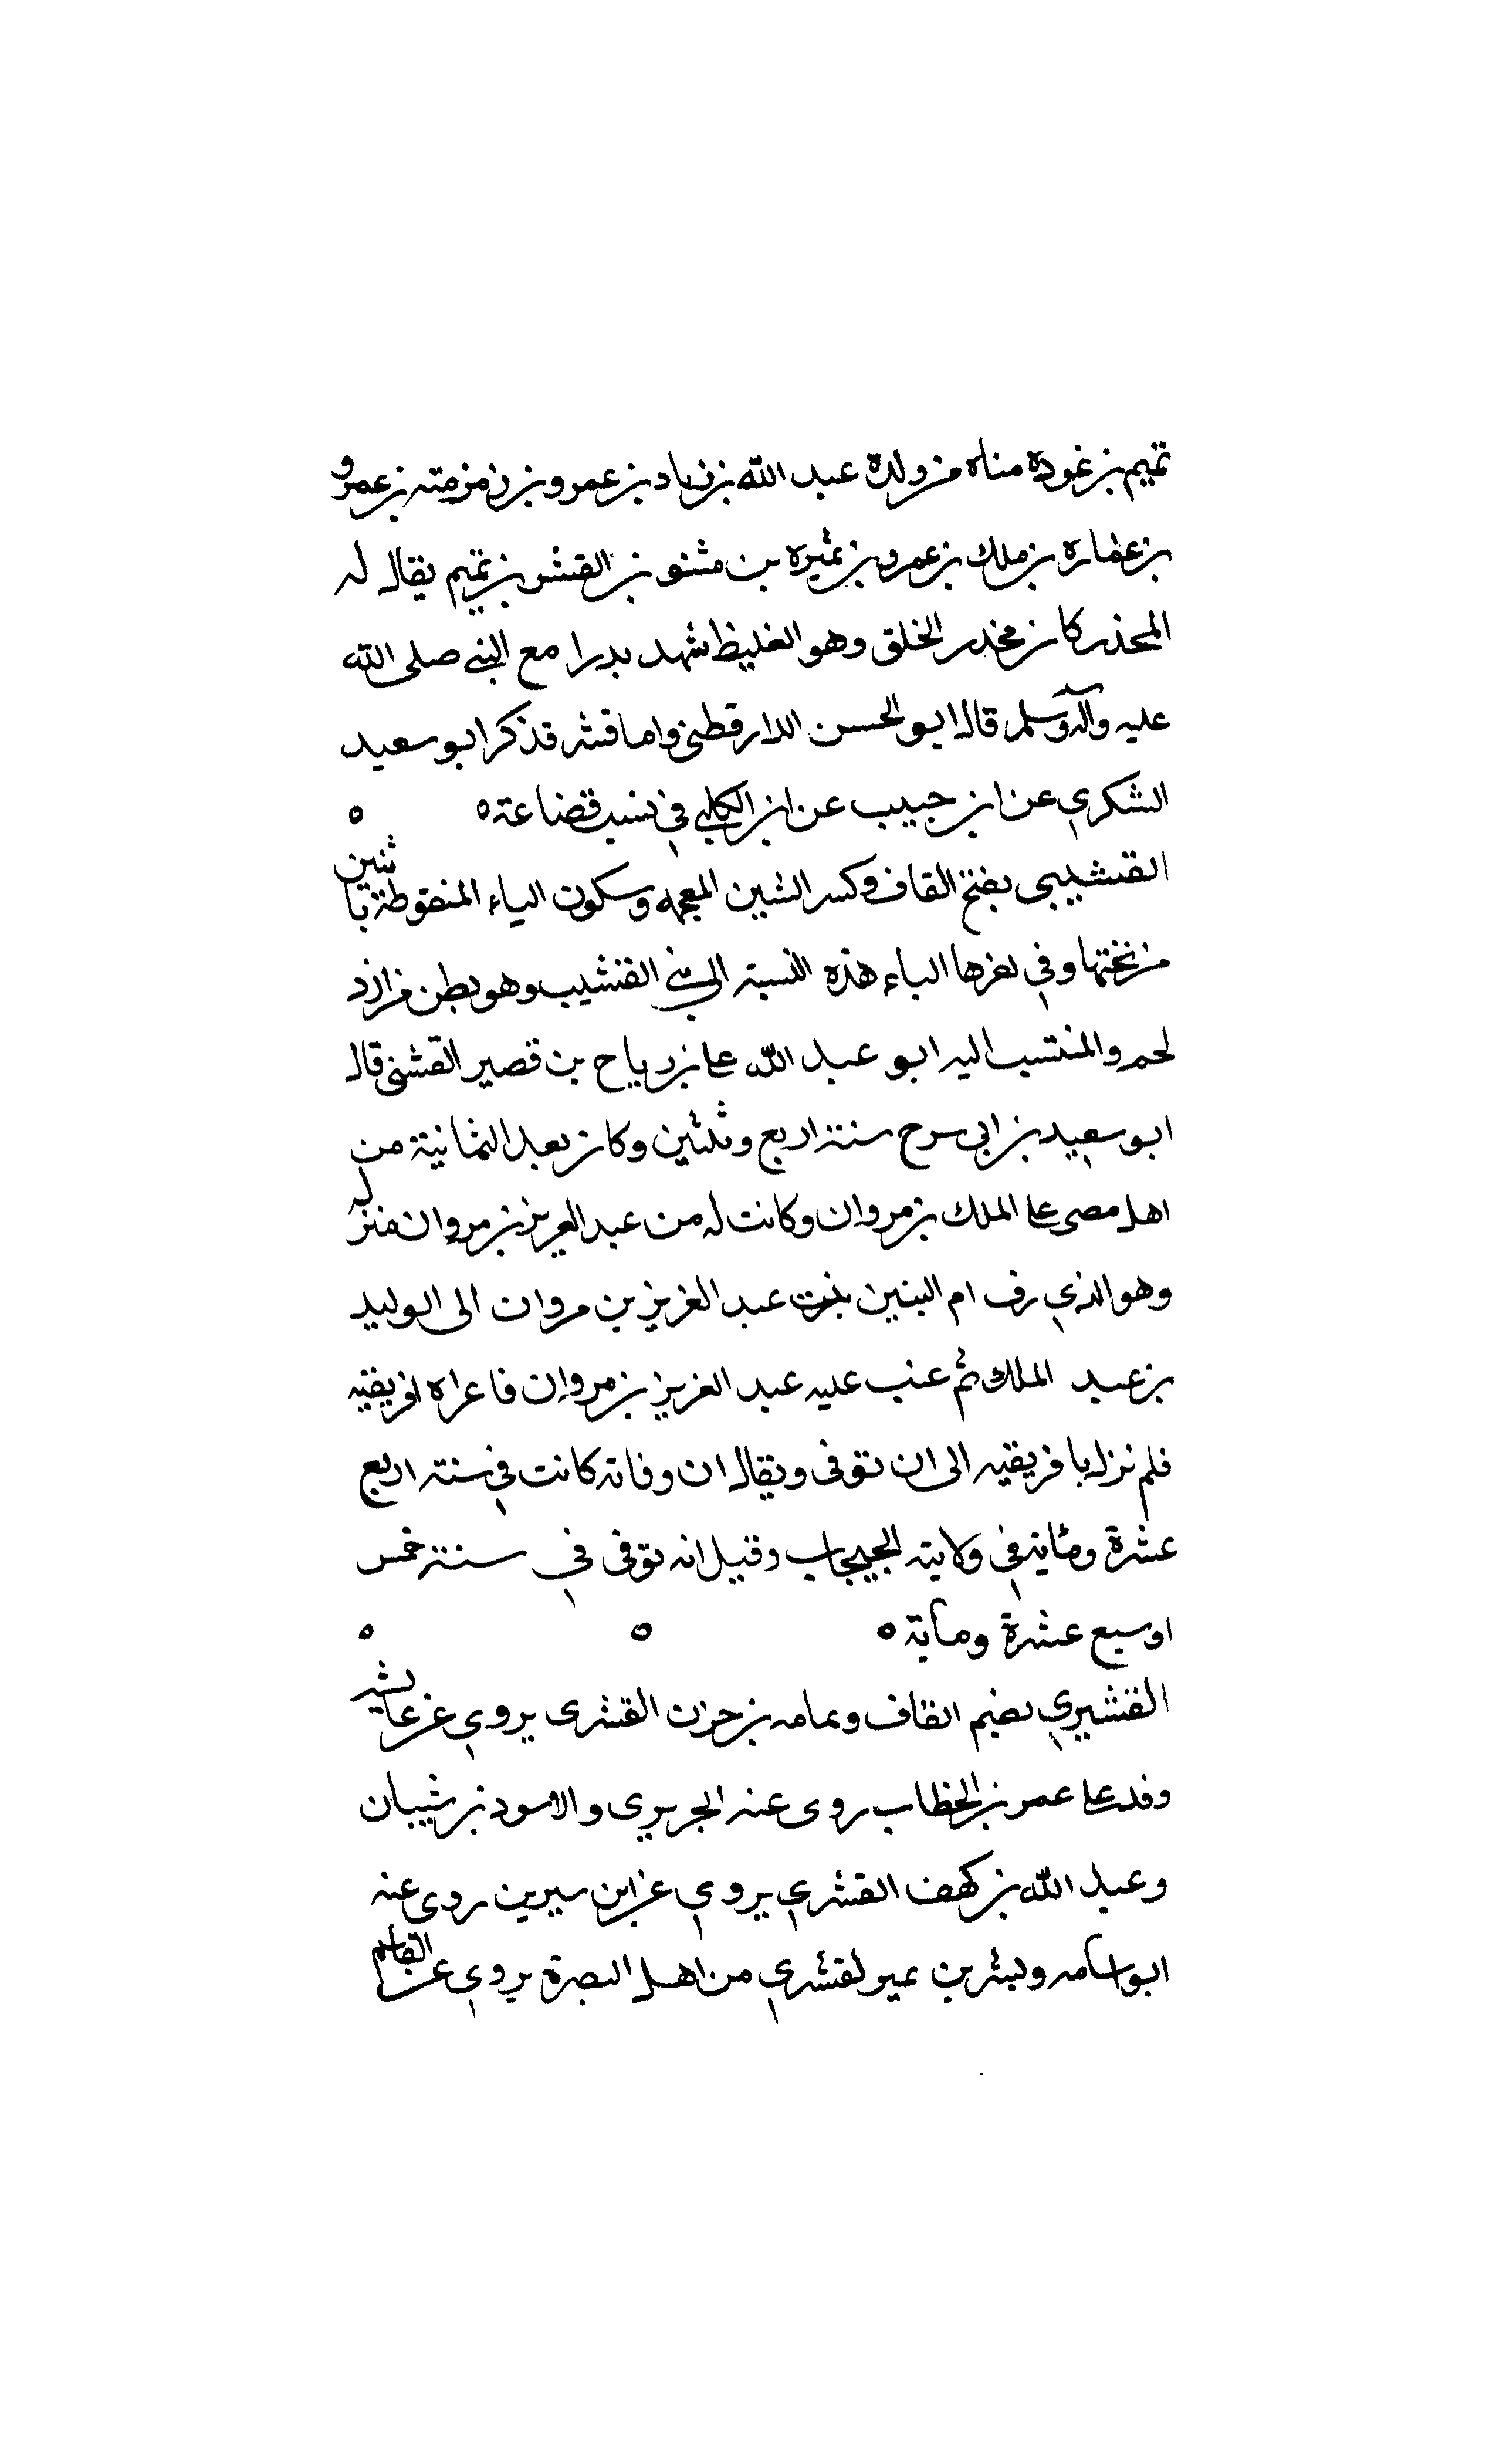 تميم بن عوده مناه من ولده عبد الله بن زياد بن عمرو بن زمزمته بن عمرو
بن عماره بن ملك بن عمرو بن بثيره بن مشنو بن القشر بن تميم يقال له
المجذر كان مجذر الخلق وهو الغليظ شهد بدرا مع النبي صلى الله
عليه وآله وسلم قال ابو الحسن الدارقطني واما قشر فذكر ابو سعيد
الشكري عن ابن حبيب عن ابن الكلبي في نسب قضاعة ه ه
القشيبي بفتح القاف وكسر الشين المعجمه وسكون الياء المنقوطة باثنين
من تحتها وفي اخرها الباء هذه النسبة الى بني القشيب وهو بطن من ازد
لحم والمنتسب اليه ابو عبد الله على بن رياح بن قصير القشني قال
ابو سعيد بن ابي سرح سنة اربع وثلثين وكان بعد الثمانية من
اهل مصر على الملك بن مروان وكانت له من عبد العزيز بن مروان منزله
وهو الذي زف ام البنين بنت عبد العزيز بن مروان الى الوليد
بن عبد الملك ثم عتب عليه عبد العزيز بن مروان فاغزاه افريقيه
فلم نزل بافريقيه الى ان توفى ويقال ان وفاته كانت في سنة اربع
عشرة ومائة في ولاية الحبحاب وقيل انه توفى في سنة خمس
او سبع عشرة ومأية ه ه ه
القشيري بضم القاف وعامه بن حزن القشرى يروي عن عايشه
وفد على عمر بن الخطاب روى عنه الجريري والاسود بن شيبان
وعبد الله بن كهف القشري يروي عن ابن سيرين روى عنه
ابو اسامه وبشر بن عمير لقشري من اهل البصرة يروي عن القاسم